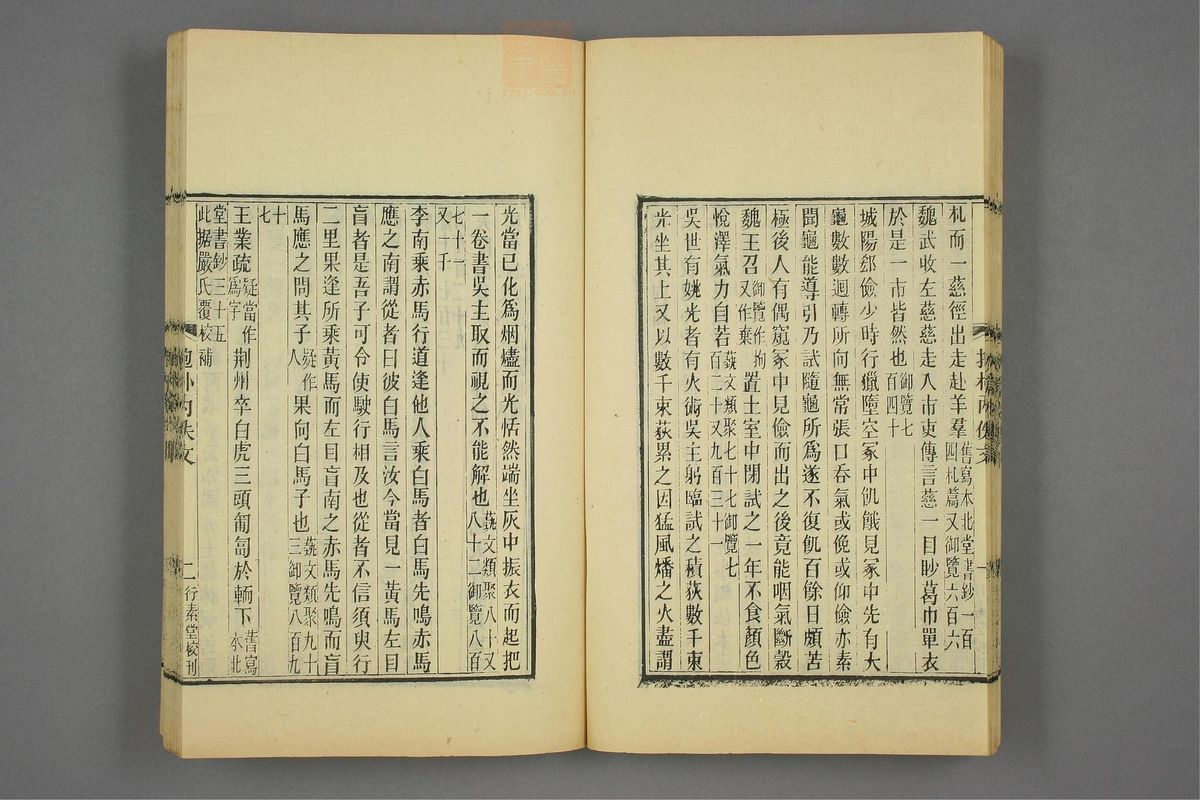 札而一慈徑出走赴羊羣舊寫本北堂書鈔一百四札篇又御覽六百六
魏武收左慈慈走入市吏傳言慈一目眇葛巾單衣
於是一市皆然也御覽七百四十
城陽郄儉少時行獵墮空冢中飢餓見冢中先有大
龜數數迴轉所向無常張口吞氣或俛或仰儉亦素
聞龜能導引乃試隨龜所爲遂不復飢百餘日頗苦
極後人有偶窺冢中見儉而出之後竟能咽氣斷穀
魏王召御覽作拘又作棄置土室中閉試之一年不食顏色
悅澤氣力自若藝文類聚七十七御覽七百二十又九百三十一
吳世有姚光者有火術吳主躬臨試之積荻數千束
光坐其上又以數千束荻累之因猛風燔之火盡謂
光當已化爲烟燼而光恬然端坐灰中振衣而起把
一卷書吳主取而視之不能解也藝文類聚八十又八十二御覽八百
七十一又一千
李南乘赤馬行道逢他人乘白馬者白馬先鳴赤馬
應之南謂從者曰彼白馬言汝今當見一黃馬左目
盲者是吾子可令使駛行相及也從者不信須臾行
二里果逢所乘黃馬而左目盲南之赤馬先鳴而盲
馬應之問其子疑作人果向白馬子也藝文類聚九十三御覽八百九
十七
王業疏疑當作爲字荆州卒白虎三頭匍匐於輀下舊寫本北
堂書鈔三十五此據嚴氏覆校補
抱朴内佚文
二
行素堂校刊